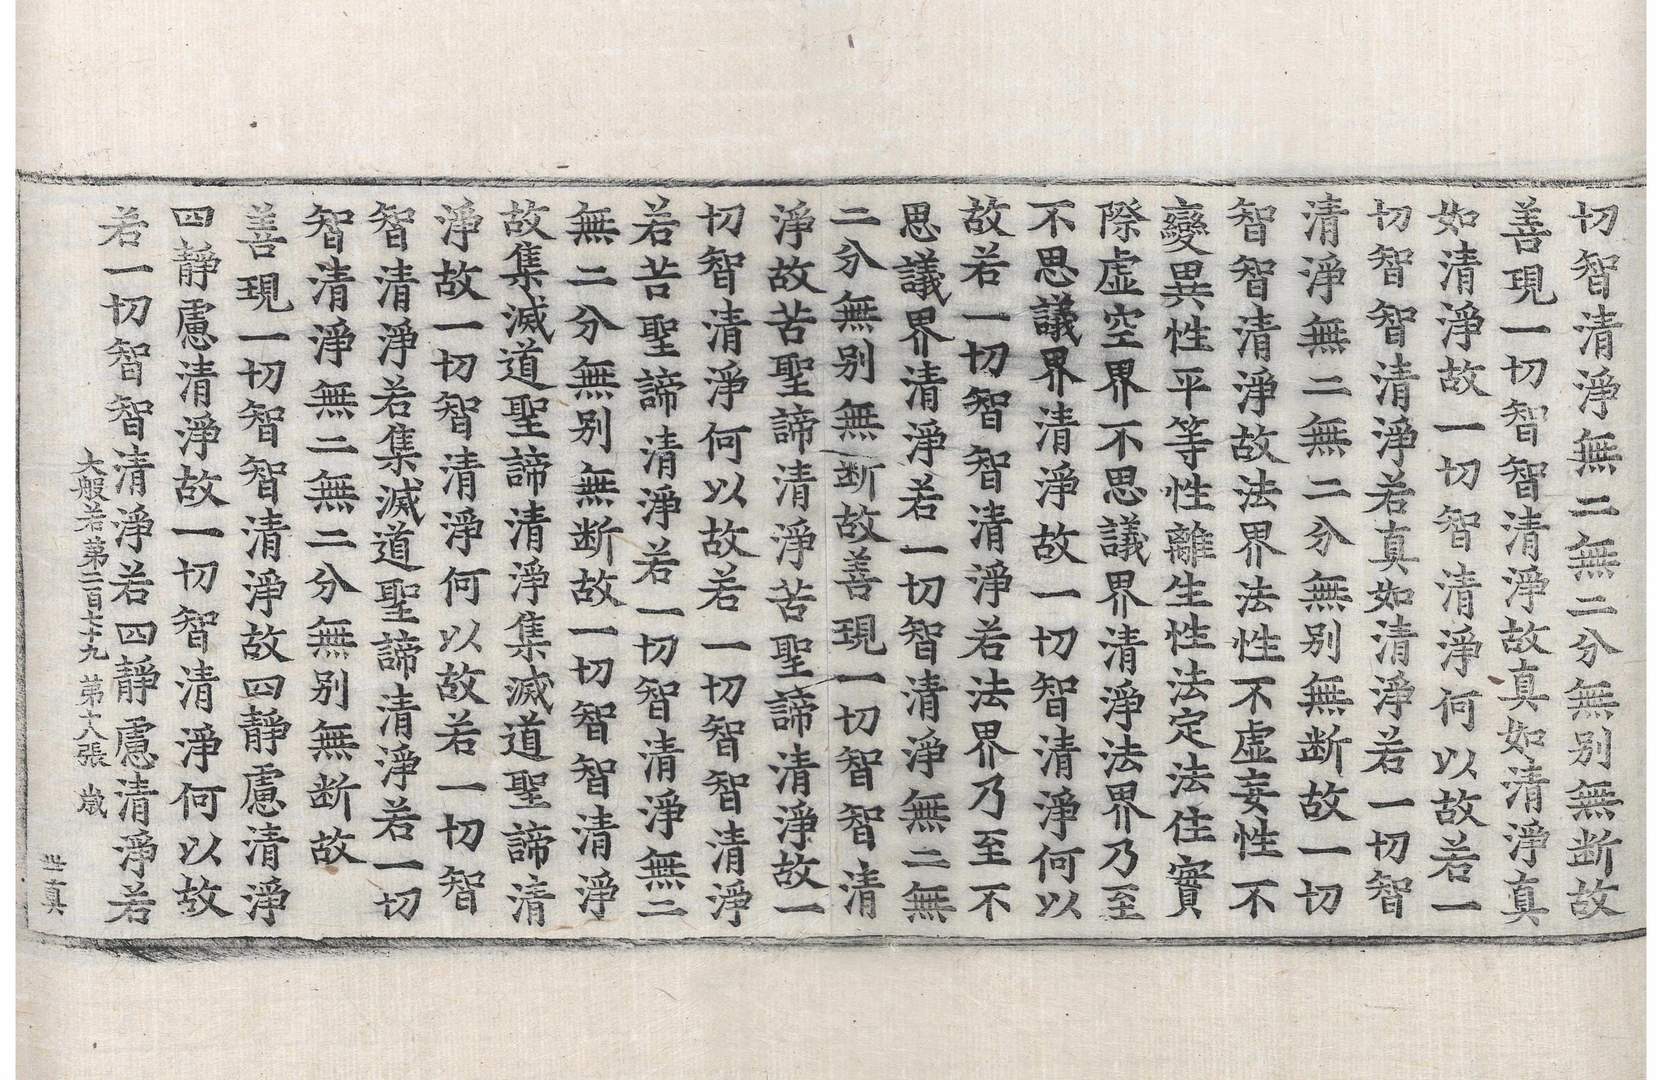 切智清淨無二無二分無别無断故
善現一切智智清淨故真如清淨真
如清淨故一切智清淨何以故若一
切智智清淨若真如清淨若一切智
清淨無二無二分無别無断故一切
智智清淨故法界法性不虚妄性不
變異性平等性離生性法定法住實
際虚空界不思議界清淨法界乃至
不思議界清淨故一切智清淨何以
故若一切智智清淨若法界乃至不
思議界清淨若一切智清淨無二無
二分無别無断故善現一切智智清
淨故苦聖諦清淨苦聖諦清淨故一
切智清淨何以故若一切智智清淨
若苦聖諦清淨若一切智清淨無二
無二分無别無断故一切智智清淨
故集滅道聖諦清淨集滅道聖諦清
淨故一切智清淨何以故若一切智
智清淨若集滅道聖諦清淨若一切
智清淨無二無二分無别無断故
善現一切智智清淨故四靜慮清淨
四靜慮清淨故一切智清淨何以故
若一切智智清淨若四靜慮清淨若
大般若第二百七十九 第六張 歲
世真